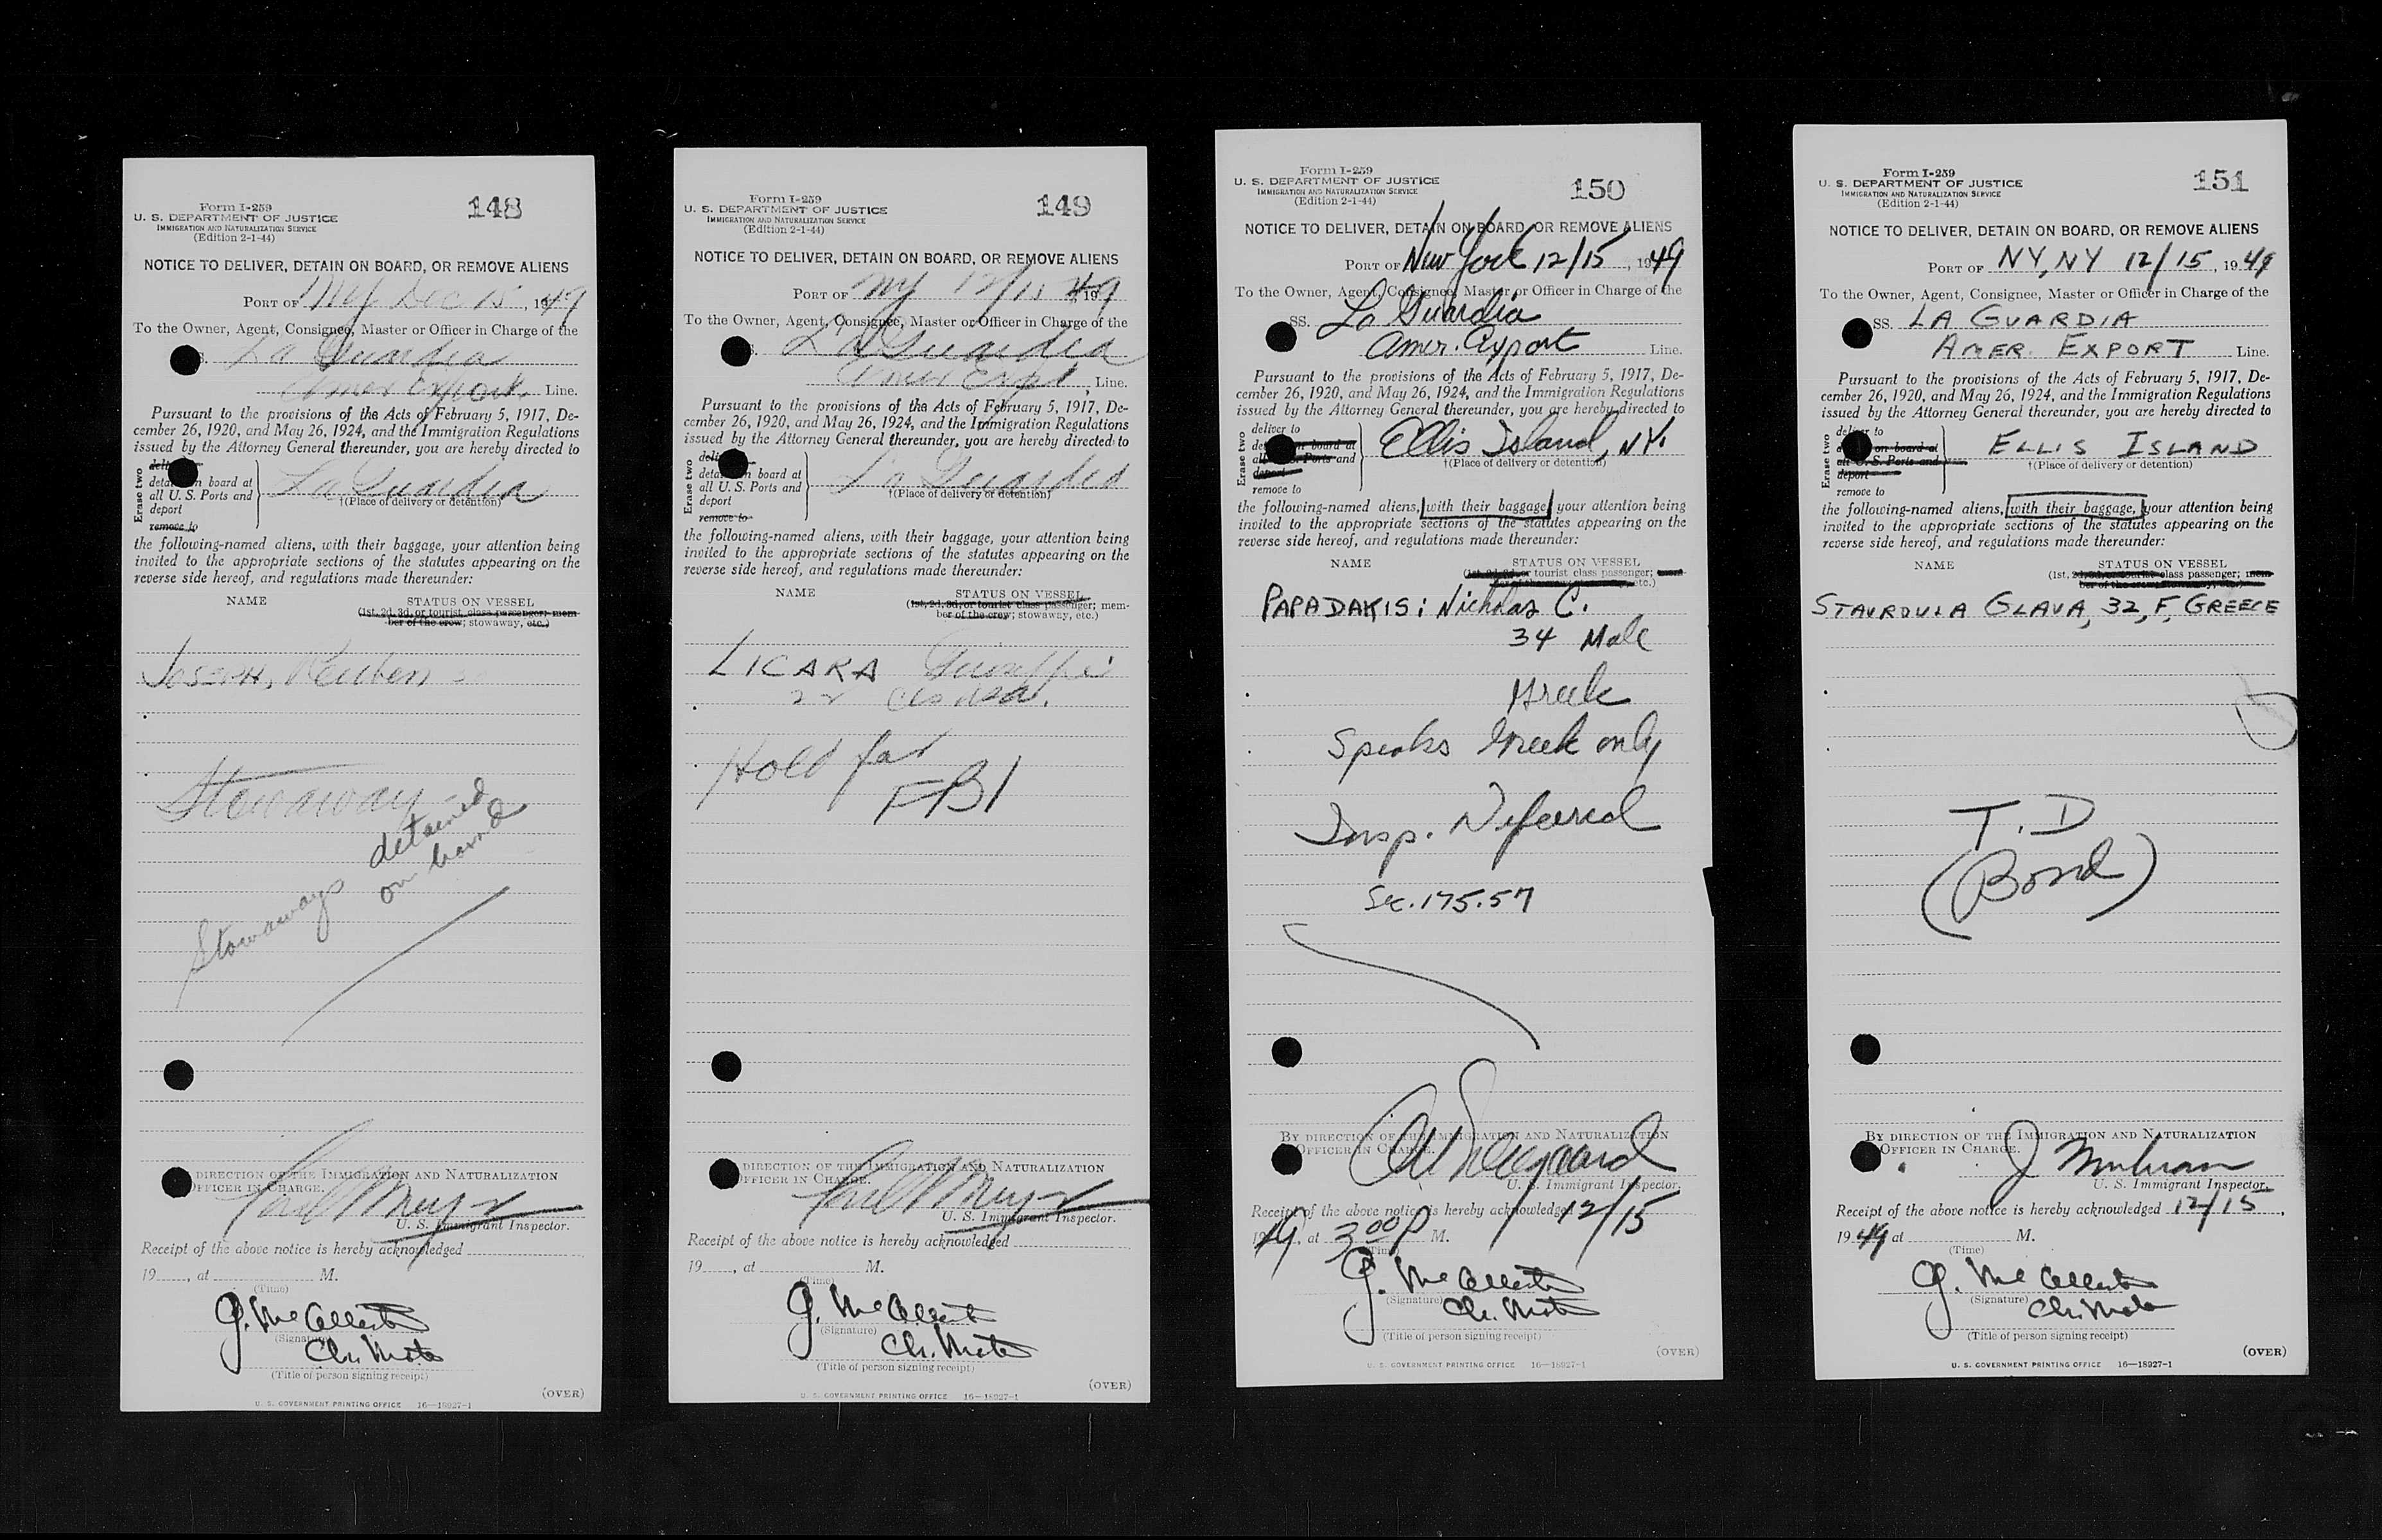 Form I-259
U. S. DEPARTMENT OF JUSTICE
IMMIGRATION AND NATURALIZATION SERVICE
(Edition 2-1-44)
148
NOTICE TO DELIVER, DETAIN ON BOARD, OR REMOVE ALIENS
PORT OF NY Dec 15, 1949
To the Owner, Agent, Consignee, Master or Officer in Charge of the
La Guardia
Amer Export Line.
Pursuant to the provisions of the Acts of February 5, 1917, De-
cember 26, 1920, and May 26, 1924, and the Immigration Regulations
issued by the Attorney General thereunder, you are hereby directed to
Erase two
board at
all U. S. Ports and
deport
remove to
La Guardia
†(Place of delivery or detention)
the following-named aliens, with their baggage, your attention being
invited to the appropriate sections of the statutes appearing on the
reverse side hereof, and regulations made thereunder:
NAME STATUS ON VESSEL
(1st, 2d, 3d, or tourist class passenger; mem-
ber of the crew; stowaway, etc.)
JOSEPH, Reuben
Stowaway
Stowaways detained
on board
DIRECTION OF THE IMMIGRATION AND NATURALIZATION
OFFICER IN CHARGE.
U. S. Immigrant Inspector.
Receipt of the above notice is hereby acknowledged
19 , at M.
(Time)
(Signature)
Ch. Mate
(Title of person signing receipt)
(OVER)
U. S. GOVERNMENT PRINTING OFFICE 16—18927-1
Form I-259
U. S. DEPARTMENT OF JUSTICE
IMMIGRATION AND NATURALIZATION SERVICE
(Edition 2-1-44)
149
NOTICE TO DELIVER, DETAIN ON BOARD, OR REMOVE ALIENS
PORT OF NY 12/15 1949
To the Owner, Agent, Consignee, Master or Officer in Charge of the
La Guardia
Amer Expt Line.
Pursuant to the provisions of the Acts of February 5, 1917, De-
cember 26, 1920, and May 26, 1924, and the Immigration Regulations
issued by the Attorney General thereunder, you are hereby directed to
Erase two
board at
all U. S. Ports and
deport
remove to
La Guardia
†(Place of delivery or detention)
the following-named aliens, with their baggage, your attention being
invited to the appropriate sections of the statutes appearing on the
reverse side hereof, and regulations made thereunder:
NAME STATUS ON VESSEL
(1st, 2d, 3d, or tourist class passenger; mem-
ber of the crew; stowaway, etc.)
LICARA
22
Hold for
FBI
DIRECTION OF THE IMMIGRATION AND NATURALIZATION
OFFICER IN CHARGE.
U. S. Immigrant Inspector.
Receipt of the above notice is hereby acknowledged
19 , at M.
(Time)
(Signature)
Ch. Mate
(Title of person signing receipt)
(OVER)
U. S. GOVERNMENT PRINTING OFFICE 16—18927-1
Form I-259
U. S. DEPARTMENT OF JUSTICE
IMMIGRATION AND NATURALIZATION SERVICE
(Edition 2-1-44)
150
NOTICE TO DELIVER, DETAIN ON BOARD, OR REMOVE ALIENS
PORT OF New York 12/15, 1949
To the Owner, Agent, Consignee, Master or Officer in Charge of the
SS. La Guardia
Amer. Export Line.
Pursuant to the provisions of the Acts of February 5, 1917, De-
cember 26, 1920, and May 26, 1924, and the Immigration Regulations
issued by the Attorney General thereunder, you are hereby directed to
Erase two
deliver to
on board at
Ports and
deport
remove to
Ellis Island, NY.
†(Place of delivery or detention)
the following-named aliens, with their baggage, your attention being
invited to the appropriate sections of the statutes appearing on the
reverse side hereof, and regulations made thereunder:
NAME STATUS ON VESSEL
(1st, 2d, 3d, or tourist class passenger; mem-
ber of the crew; stowaway, etc.)
PAPADAKIS: Nicholas C.
34 Male
Greek
Speaks Greek only
Insp. Deferred
Sec. 175.57
BY DIRECTION OF THE IMMIGRATION AND NATURALIZATION
OFFICER IN CHARGE.
U. S. Immigrant Inspector.
Receipt of the above notice is hereby acknowledged 12/15
1949, at 3 00 P M.
(Time)
(Signature)
Ch. Mate
(Title of person signing receipt)
(OVER)
U. S. GOVERNMENT PRINTING OFFICE 16—18927-1
Form I-259
U. S. DEPARTMENT OF JUSTICE
IMMIGRATION AND NATURALIZATION SERVICE
(Edition 2-1-44)
151
NOTICE TO DELIVER, DETAIN ON BOARD, OR REMOVE ALIENS
PORT OF NY, NY 12/15, 1949
To the Owner, Agent, Consignee, Master or Officer in Charge of the
SS. LA GUARDIA
AMER. EXPORT Line.
Pursuant to the provisions of the Acts of February 5, 1917, De-
cember 26, 1920, and May 26, 1924, and the Immigration Regulations
issued by the Attorney General thereunder, you are hereby directed to
Erase two
deliver to
on board at
all U. S. Ports and
deport
remove to
ELLIS ISLAND
†(Place of delivery or detention)
the following-named aliens, with their baggage, your attention being
invited to the appropriate sections of the statutes appearing on the
reverse side hereof, and regulations made thereunder:
NAME STATUS ON VESSEL
(1st, 2d, 3d, or tourist class passenger; mem-
ber of the crew; stowaway, etc.)
STAVROULA GLAVA, 32, F, GREECE
T. D
(Bond)
BY DIRECTION OF THE IMMIGRATION AND NATURALIZATION
OFFICER IN CHARGE.
U. S. Immigrant Inspector.
Receipt of the above notice is hereby acknowledged 12/15,
1949 at M.
(Time)
(Signature)
Ch. Mate
(Title of person signing receipt)
(OVER)
U. S. GOVERNMENT PRINTING OFFICE 16—18927-1